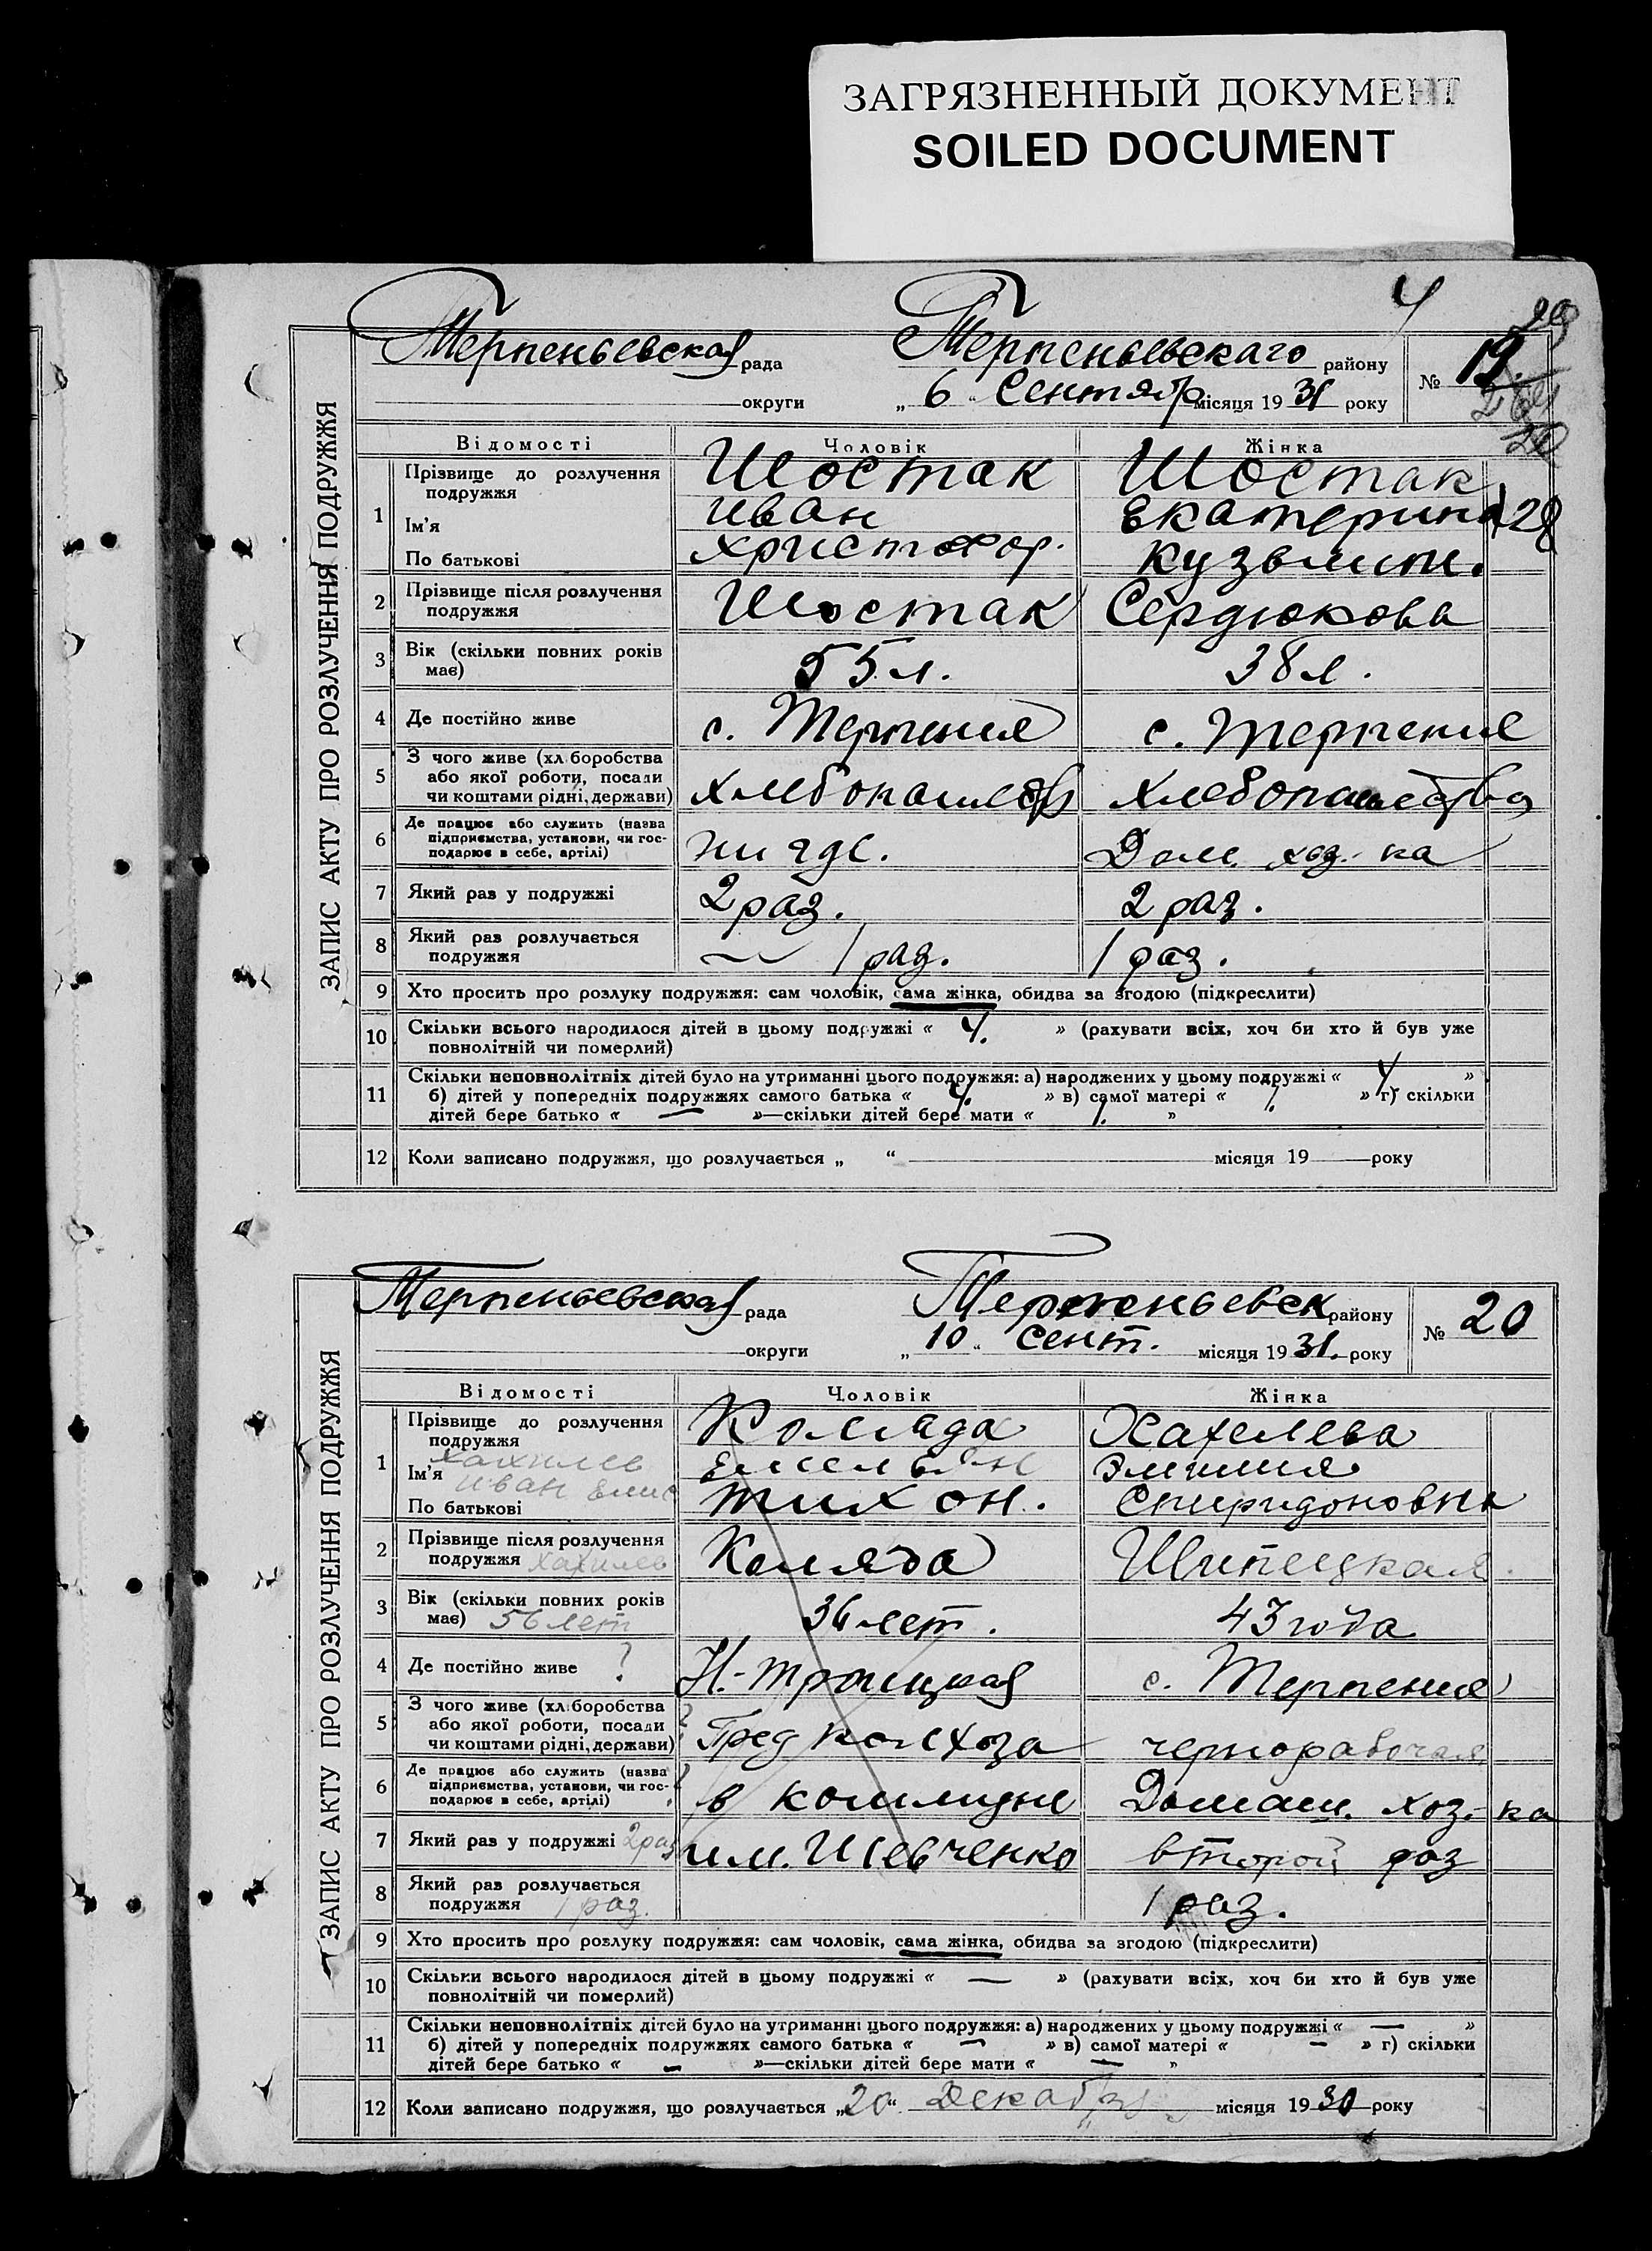 ЗАГРЯЗНЕННЫЙ ДОКУМЕНТ
SOILED DOCUMENT
4
ЗАПИС АКТУ ПРО РОЗЛУЧЕННЯ ПОДРУЖЖЯ
Терпеньевская рада Терпеньевскаго району № 19.
округи „ 6 " Сентябр місяця 19 31 року
20
Відомості Чоловік Жінка
1 Прізвище до розлучення подружжя Шостак Шостак
Ім'я Иван Екатерина 28
По батькові Христофор. Кузьмин.
2 Прізвище після розлучення подружжя Шостак Сердюкова
3 Вік (скільки повних років має) 55 л. 38 л.
4 Де постійно живе с. Терпения с. Терпения
5 З чого живе (хліборобства
або якої роботи, посади
чи коштами рідні, держави) Хлебопашеств Хлебопашества
6 Де працює або служить (назва
підприємства, установи, чи гос-
подарює в себе, артілі) нигде. Дом. хоз.-ка
7 Який раз у подружжі 2 раз. 2 раз.
8 Який раз розлучається подружжя 1 раз. 1 раз.
9 Хто просить про розлуку подружжя: сам чоловік, сама жінка, обидва за згодою (підкреслити)
10 Скільки всього народилося дітей в цьому подружжі « 4. » (рахувати всіх, хоч би хто й був уже
повнолітній чи померлий)
11 Скільки неповнолітніх дітей було на утриманні цього подружжя: а) народжених у цьому подружжі « 4 »
б) дітей у попередніх подружжях самого батька « 4. » в) самої матері « 1. » г) скільки
дітей бере батько « — »—скільки дітей бере мати « 1. »
12 Коли записано подружжя, що розлучається „ “ місяця 19 року
ЗАПИС АКТУ ПРО РОЗЛУЧЕННЯ ПОДРУЖЖЯ
Терпеньевская рада Терпеньевск району № 20
округи „ 10 " Сент. місяця 19 31. року
Відомості Чоловік Жінка
1 Прізвище до розлучення подружжя Коляда Хахелева
Хахилев
Ім'я Иван Емис Емельян Эмилия
По батькові Тихон. Спиридоновна
2 Прізвище після розлучення подружжя Хахилев Коляда Шипецкая
3 Вік (скільки повних років має) 56 лет 36 лет. 43 года
4 Де постійно живе ? Н.-Троицкая с. Терпения
5 З чого живе (хліборобства
або якої роботи, посади
чи коштами рідні, держави) ? Пред колхоза чернорабочая
6 Де працює або служить (назва
підприємства, установи, чи гос-
подарює в себе, артілі) ? в коммуне Домаш. хоз.-ка
7 Який раз у подружжі 2 раз им. Шевченко второй раз
8 Який раз розлучається подружжя 1 раз. 1 раз.
9 Хто просить про розлуку подружжя: сам чоловік, сама жінка, обидва за згодою (підкреслити)
10 Скільки всього народилося дітей в цьому подружжі « — » (рахувати всіх, хоч би хто й був уже
повнолітній чи померлий)
11 Скільки неповнолітніх дітей було на утриманні цього подружжя: а) народжених у цьому подружжі « — »
б) дітей у попередніх подружжях самого батька « — » в) самої матері « — » г) скільки
дітей бере батько « — »—скільки дітей бере мати « — »
12 Коли записано подружжя, що розлучається „20“ Декабря місяця 19 30 року